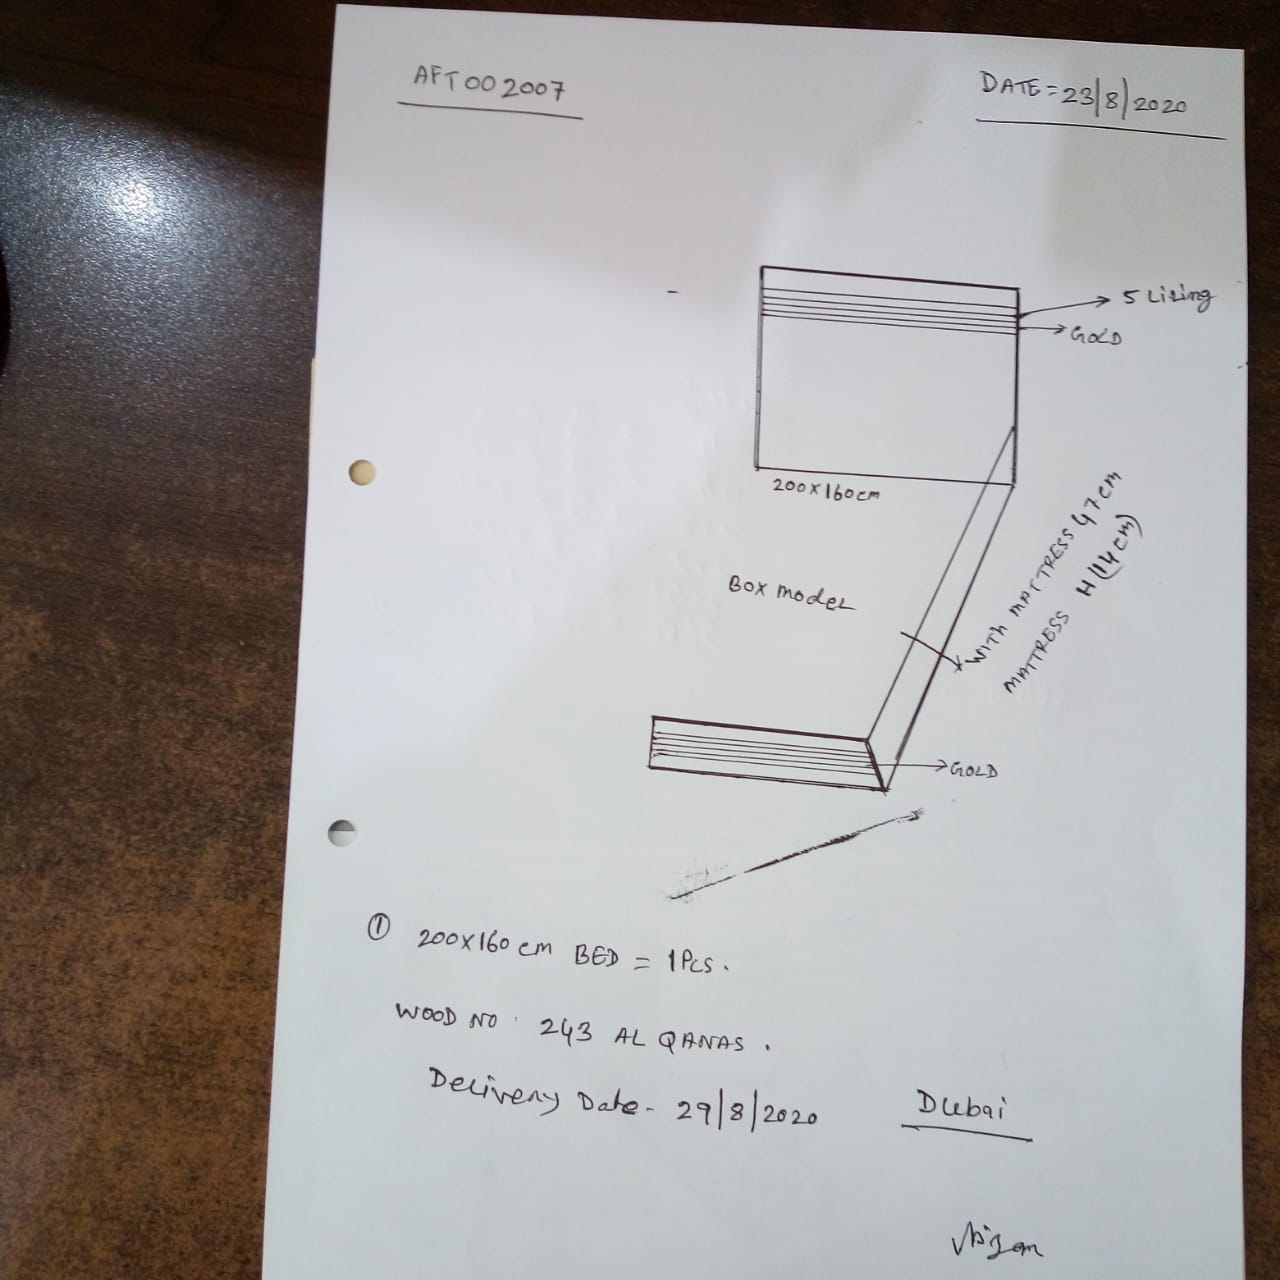 AFT002007
DATE=23/8/2020
5 Lizing
GOLD
200x160cm
WITH MATTRESS 47cm
MATTRESS H(14cm)
Box model
GOLD
① 200x160 cm BED = 1Pcs.
WOOD NO. 243 AL QANAS.
Delivery Date- 29/8/2020
Dubai